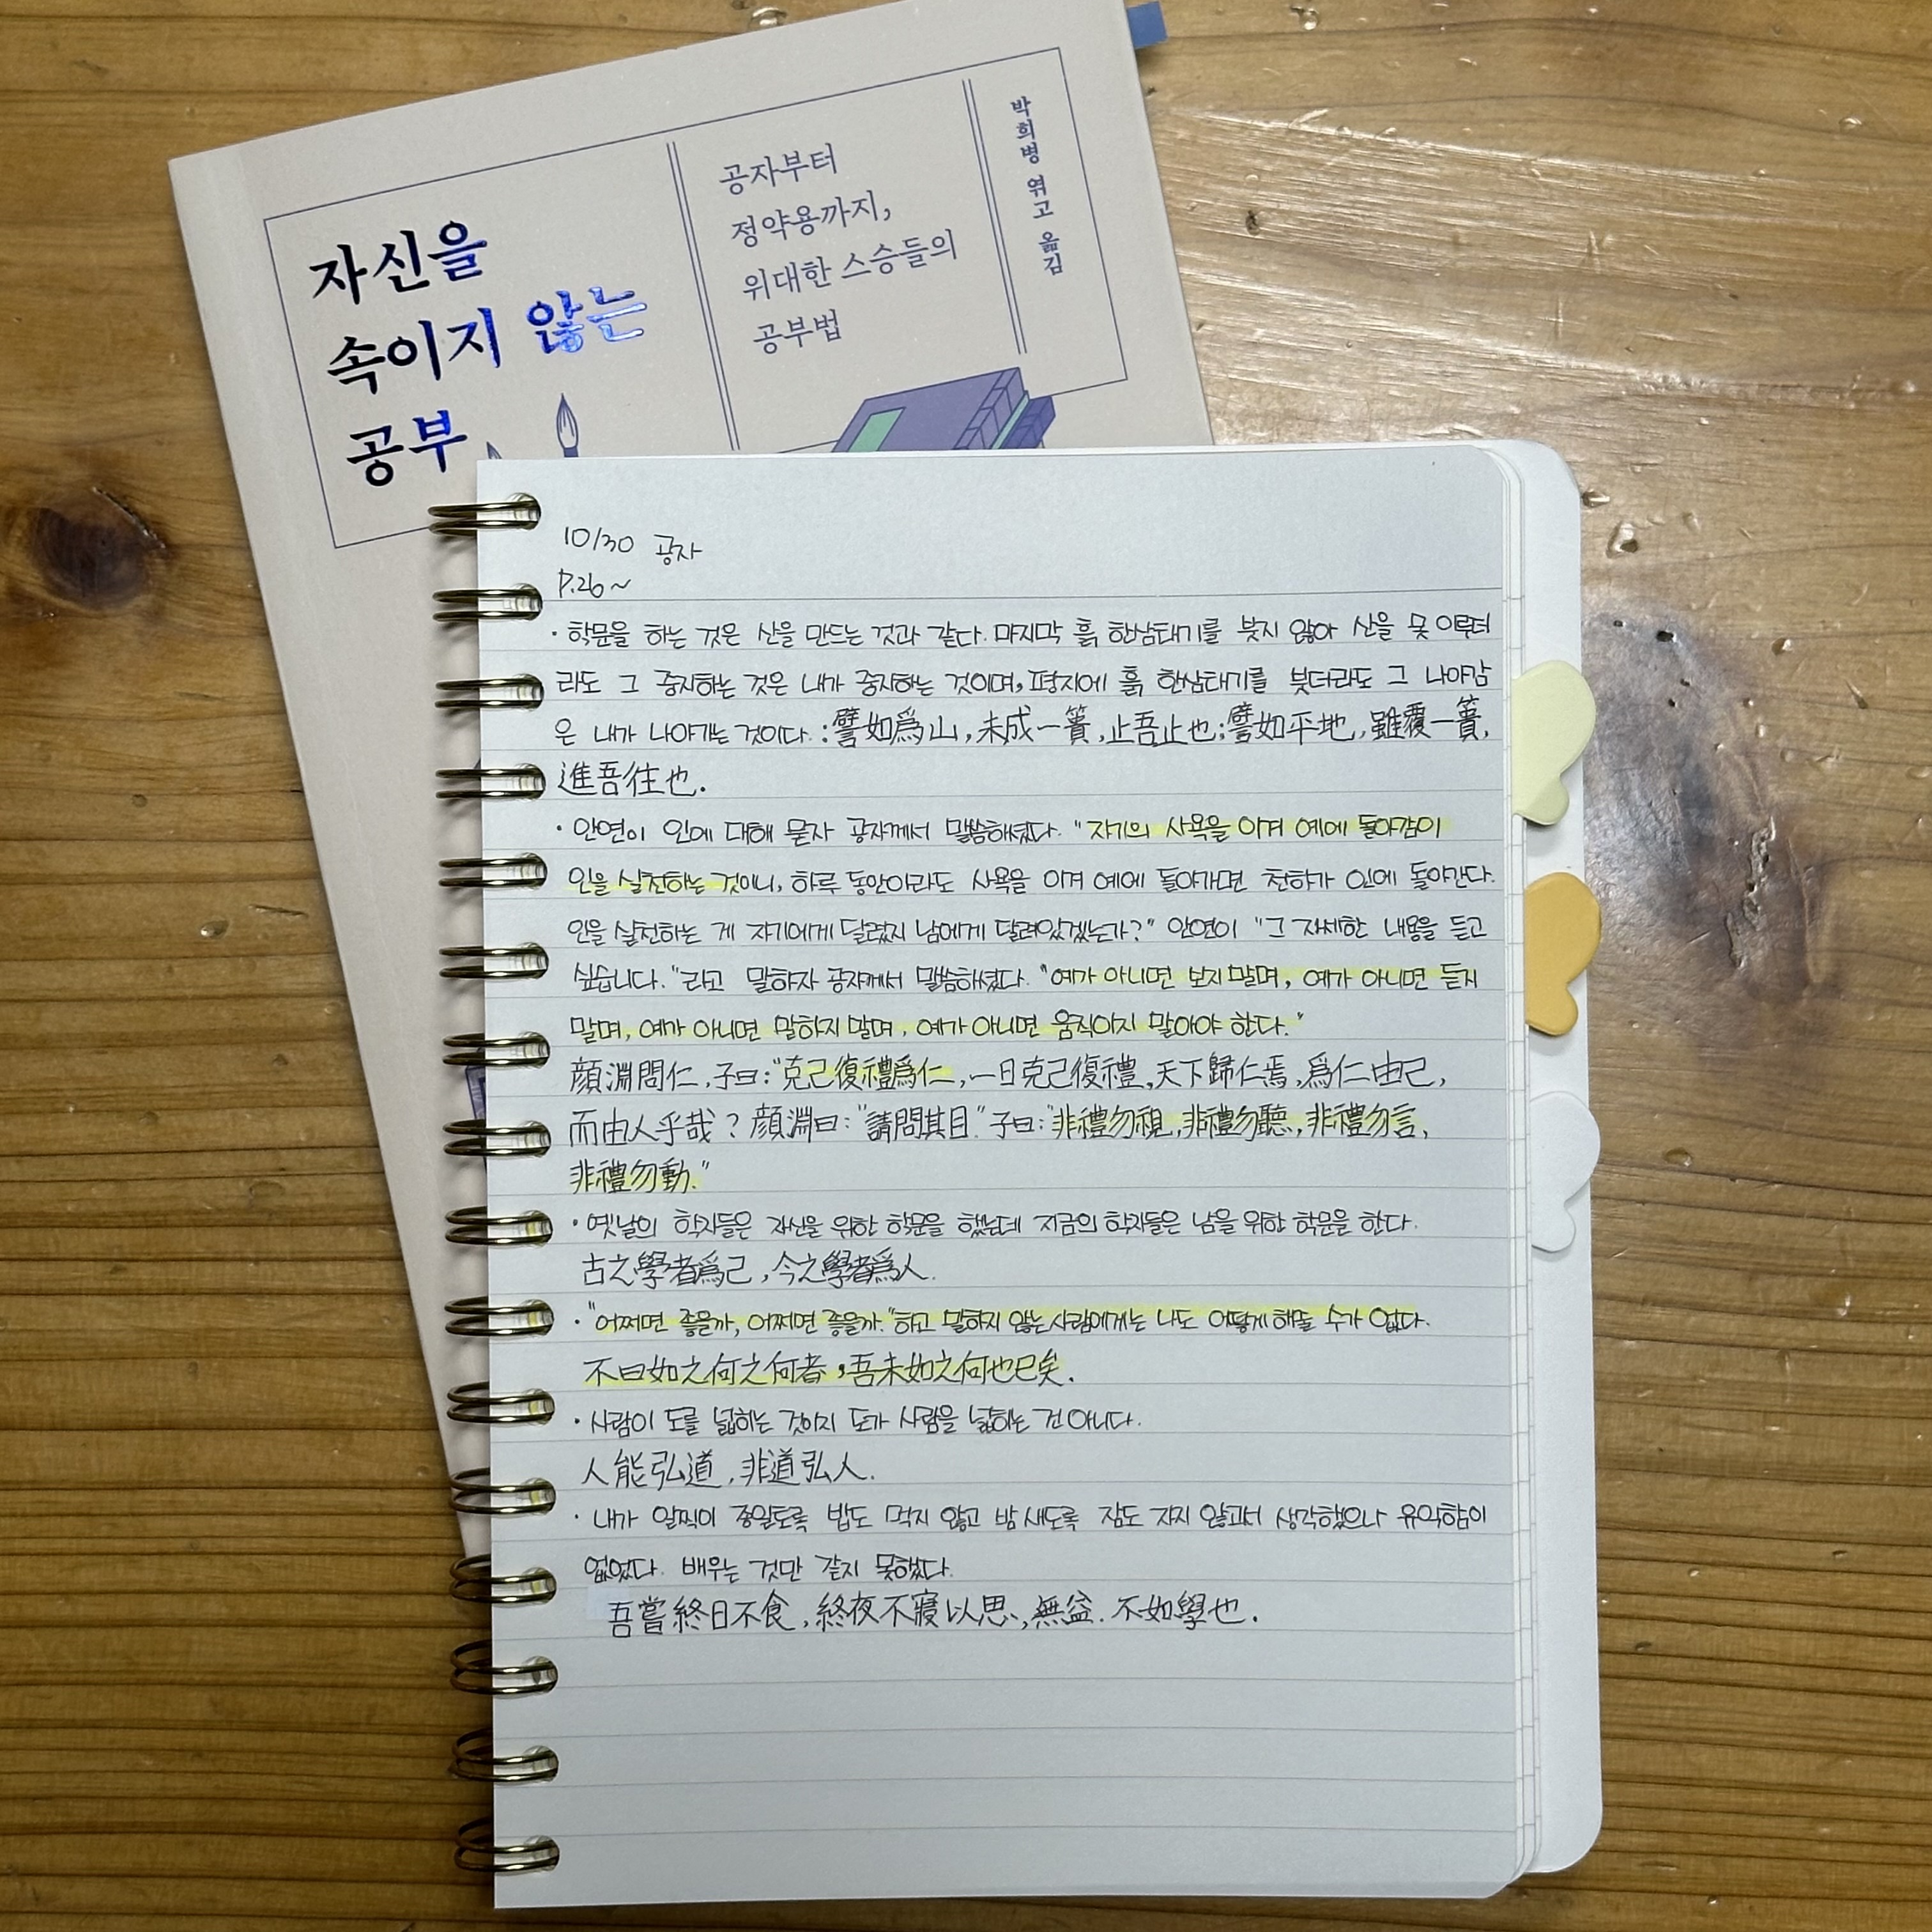 자신을
속이지 않는
공부
공자부터
정약용까지,
위대한 스승들의
공부법
박희병 엮고 옮김
10/30 공자
P.26~
· 학문을 하는 것은 산을 만드는 것과 같다. 마지막 흙 한삼태기를 붓지 않아 산을 못 이루더
라도 그 중지하는 것은 내가 중지하는 것이며, 평지에 흙 한삼태기를 붓더라도 그 나아감
은 내가 나아가는 것이다. : 譬如爲山, 未成一簣, 止吾止也; 譬如平地, 雖覆一簣,
進吾往也.
· 안연이 인에 대해 묻자 공자께서 말씀하셨다. "자기의 사욕을 이겨 예에 돌아감이
인을 실천하는 것이니, 하루 동안이라도 사욕을 이겨 예에 돌아가면 천하가 인에 돌아간다.
인을 실천하는 게 자기에게 달렸지 남에게 달려있겠는가?" 안연이 "그 자세한 내용을 듣고
싶습니다."라고 말하자 공자께서 말씀하셨다. "예가 아니면 보지 말며, 예가 아니면 듣지
말며, 예가 아니면 말하지 말며, 예가 아니면 움직이지 말아야 한다."
顔淵問仁, 子曰: "克己復禮爲仁, 一日克己復禮, 天下歸仁焉, 爲仁由己,
而由人乎哉? 顔淵曰: "請問其目." 子曰: "非禮勿視, 非禮勿聽, 非禮勿言,
非禮勿動."
· 옛날의 학자들은 자신을 위한 학문을 했는데 지금의 학자들은 남을 위한 학문을 한다.
古之學者爲己, 今之學者爲人.
· "어쩌면 좋을까, 어쩌면 좋을까."하고 말하지 않는 사람에게는 나도 어떻게 해줄 수가 없다.
不曰如之何之何者, 吾未如之何也已矣.
· 사람이 도를 넓히는 것이지 도가 사람을 넓히는 건 아니다.
人能弘道, 非道弘人.
· 내가 일찍이 종일토록 밥도 먹지 않고 밤새도록 잠도 자지 않고서 생각했으나 유익함이
없었다. 배우는 것만 같지 못했다.
吾嘗終日不食, 終夜不寢以思, 無益. 不如學也.